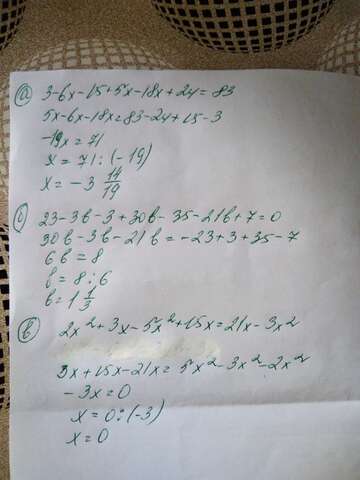 а) 3-6x-15+5x-18x+24=83
5x-6x-18x=83-24+15-3
-19x=71
x=71:(-19)
x=-3 14/19
б) 23-3b-3+30b-35-21b+7=0
30b-3b-21b=-23+3+35-7
6b=8
b=8:6
b=1 1/3
в) 2x²+3x-5x²+15x=21x-3x²
3x+15x-21x=5x²-3x²-2x²
-3x=0
x=0:(-3)
x=0